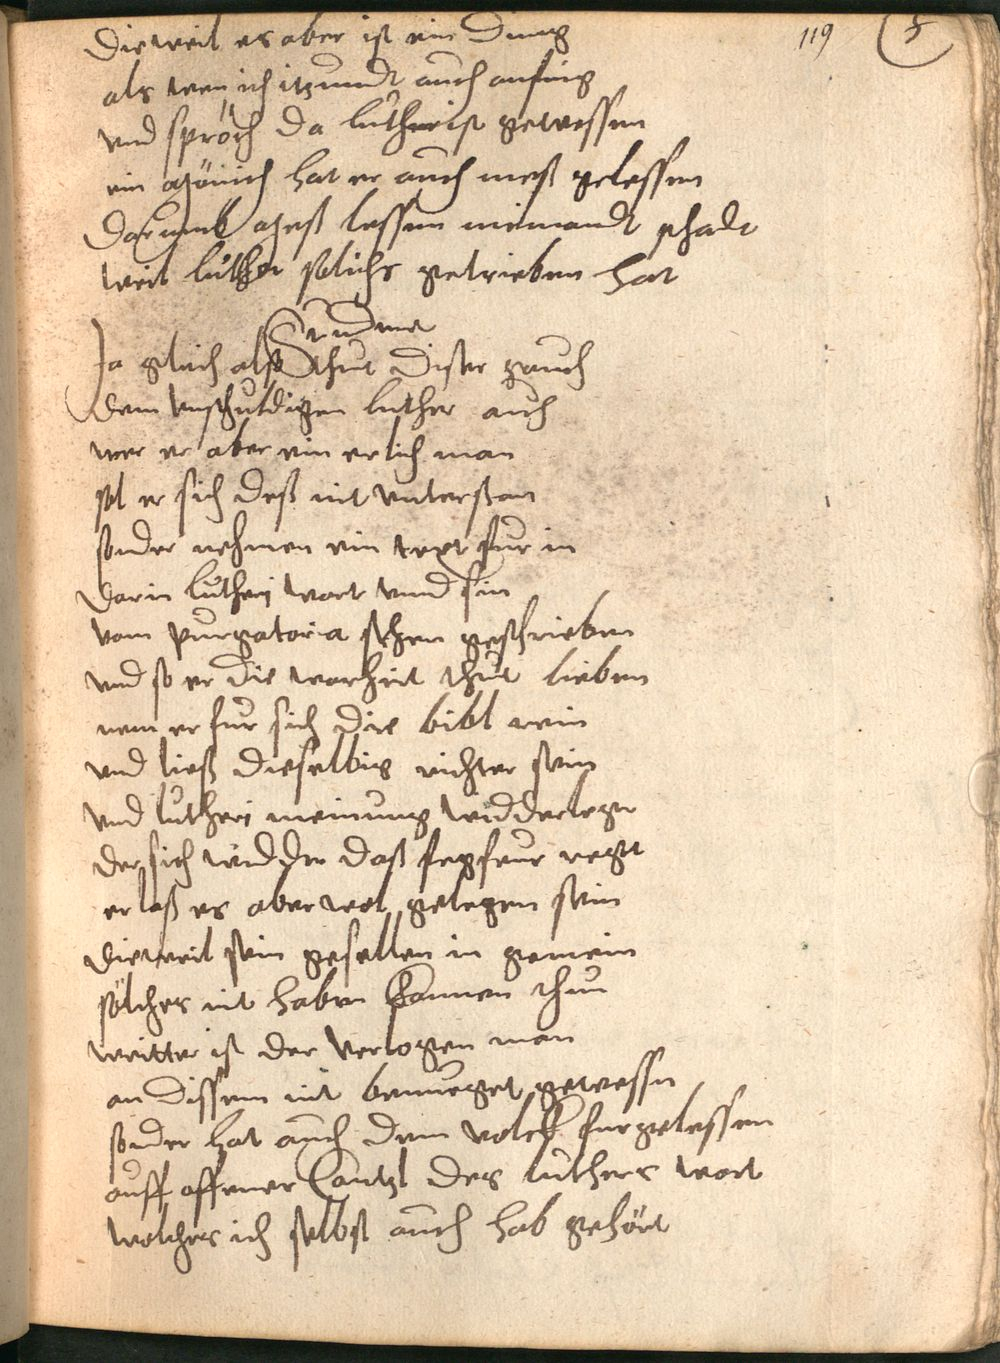 119
Dieweil es aber ist ein Ding
als wen ich itzundt auch anfing
vnd spröch da luther ist gewessen
ein Mönich hat er auch meß gelessen
Darumb Meß lessen niemandt schadt
weil luther solichs getrieben hat
Ja gleich also thut disser gauch
dem vnschuldigen luther auch
wer er aber ein erlich man
sol er sich deß nit vnterstan
sonder nehmen ein text fur in
darin lutheri wort vnnd sin
vom purgatoria sthen geschrieben
vnd so er die warheit thut lieben
nem er fur sich die bibl rein
vnd ließ dieselbig richter sein
vnd lutheri meinung widderleger
der sich widder daß fegfeur regt
er laß es aber wol gelegen sein
dieweil sein gesellen in gemein
sölches nit haben können thun
weitter ist der verlogen man
an dissem nit benueget gewessn
sonder hat auch dem volck furgelessen
auff offener Cantzl des luthers wort
wolches ich selbst auch hab gehört